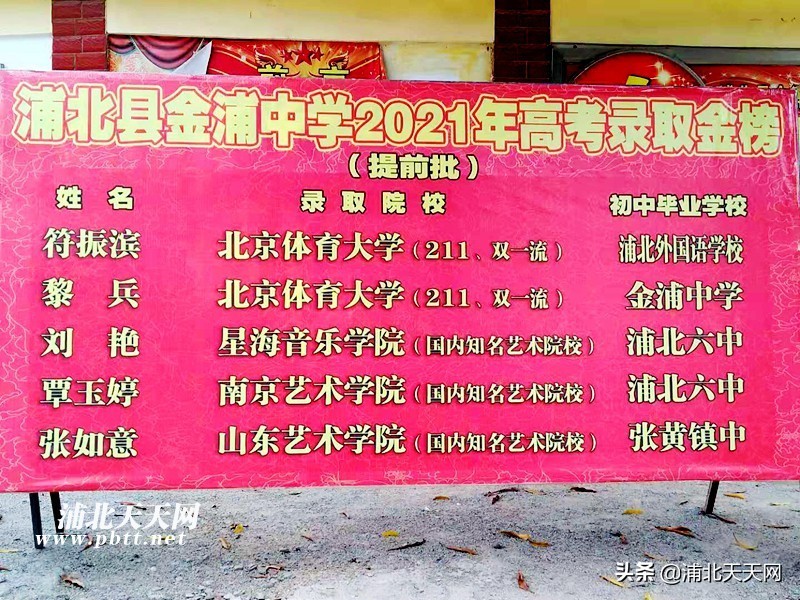 浦北县金浦中学2021年高考录取金榜
（提前批）
姓名 录取院校 初中毕业学校
符振滨 北京体育大学（211、双一流） 浦北外国语学校
黎兵 北京体育大学（211、双一流） 金浦中学
刘艳 星海音乐学院（国内知名艺术院校） 浦北六中
覃玉婷 南京艺术学院（国内知名艺术院校） 浦北六中
张如意 山东艺术学院（国内知名艺术院校） 张黄镇中
浦北天天网
www.pbtt.net
头条 @浦北天天网